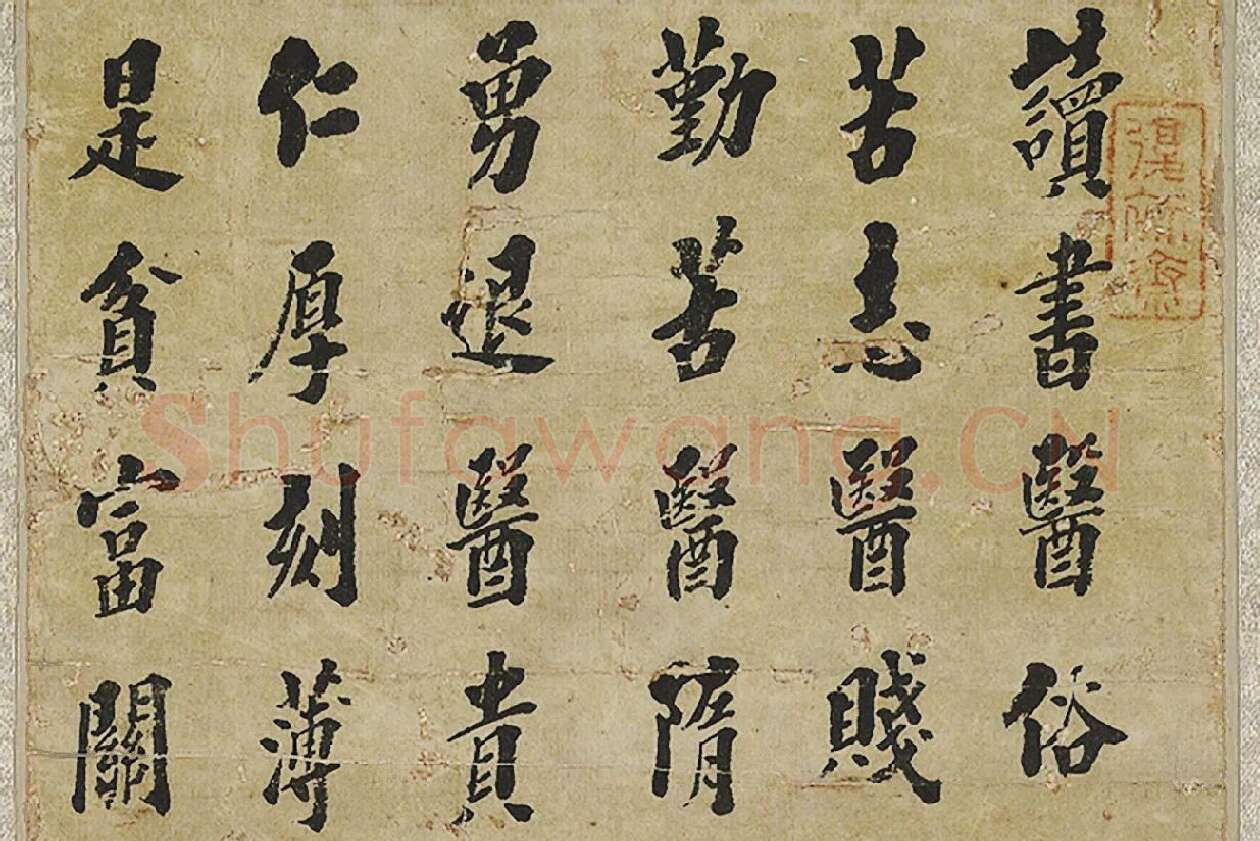 讀書醫俗
苦志醫賤
勤苦醫隋
勇退醫貴
仁厚刻薄
是貧富關
Shufawang.CN